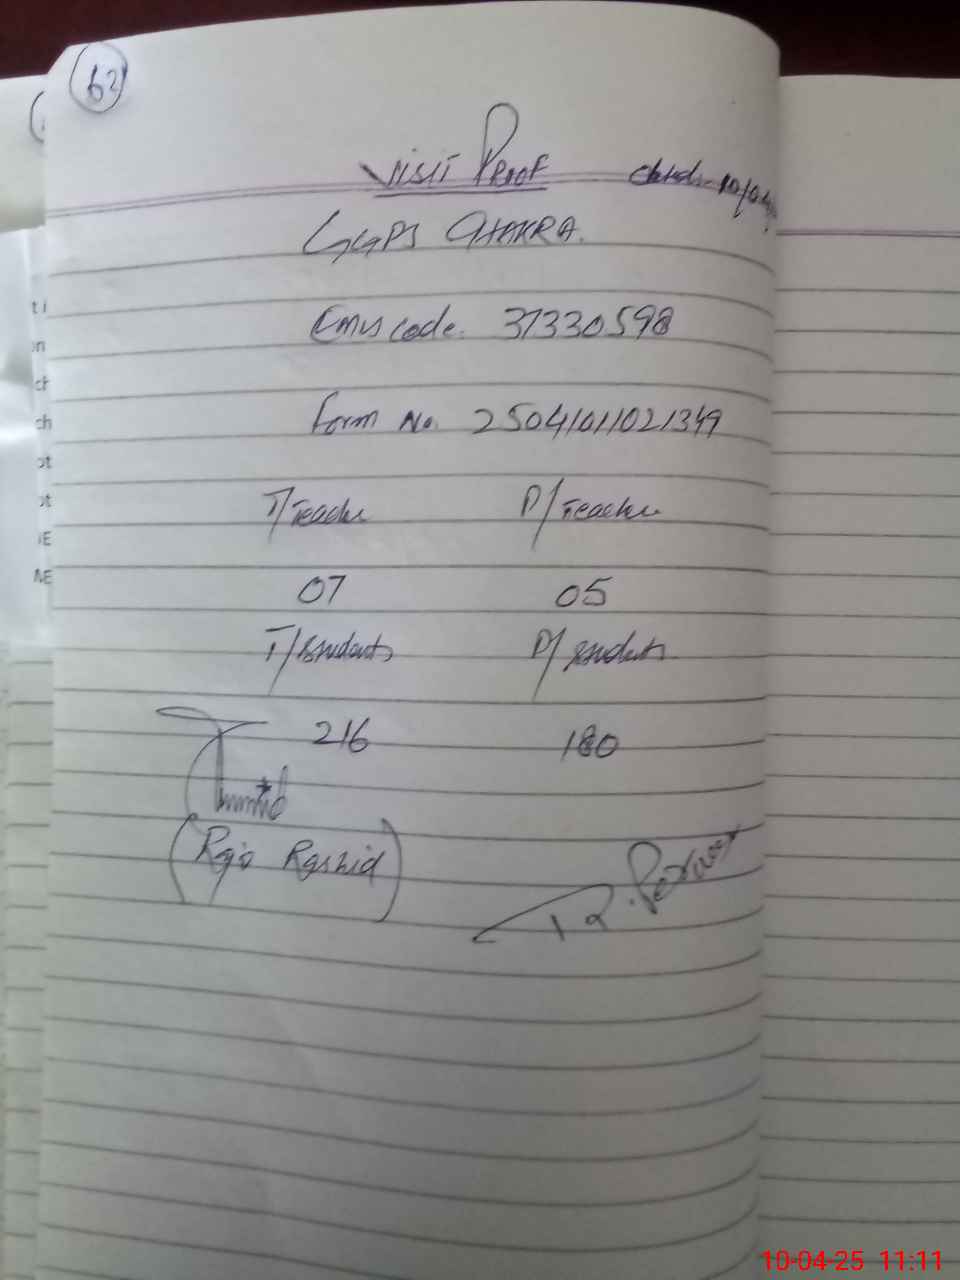 62
Visit Proof dated 10/04
GGPS CHAKRA.
Emis code. 37330598
Form No. 25041011021349
T/Teacher P/Teacher
07 05
T/Students P/Students
216 180
(Raja Rashid)
t i
on
ch
ch
ot
ot
IE
ME
10-04-25 11:11